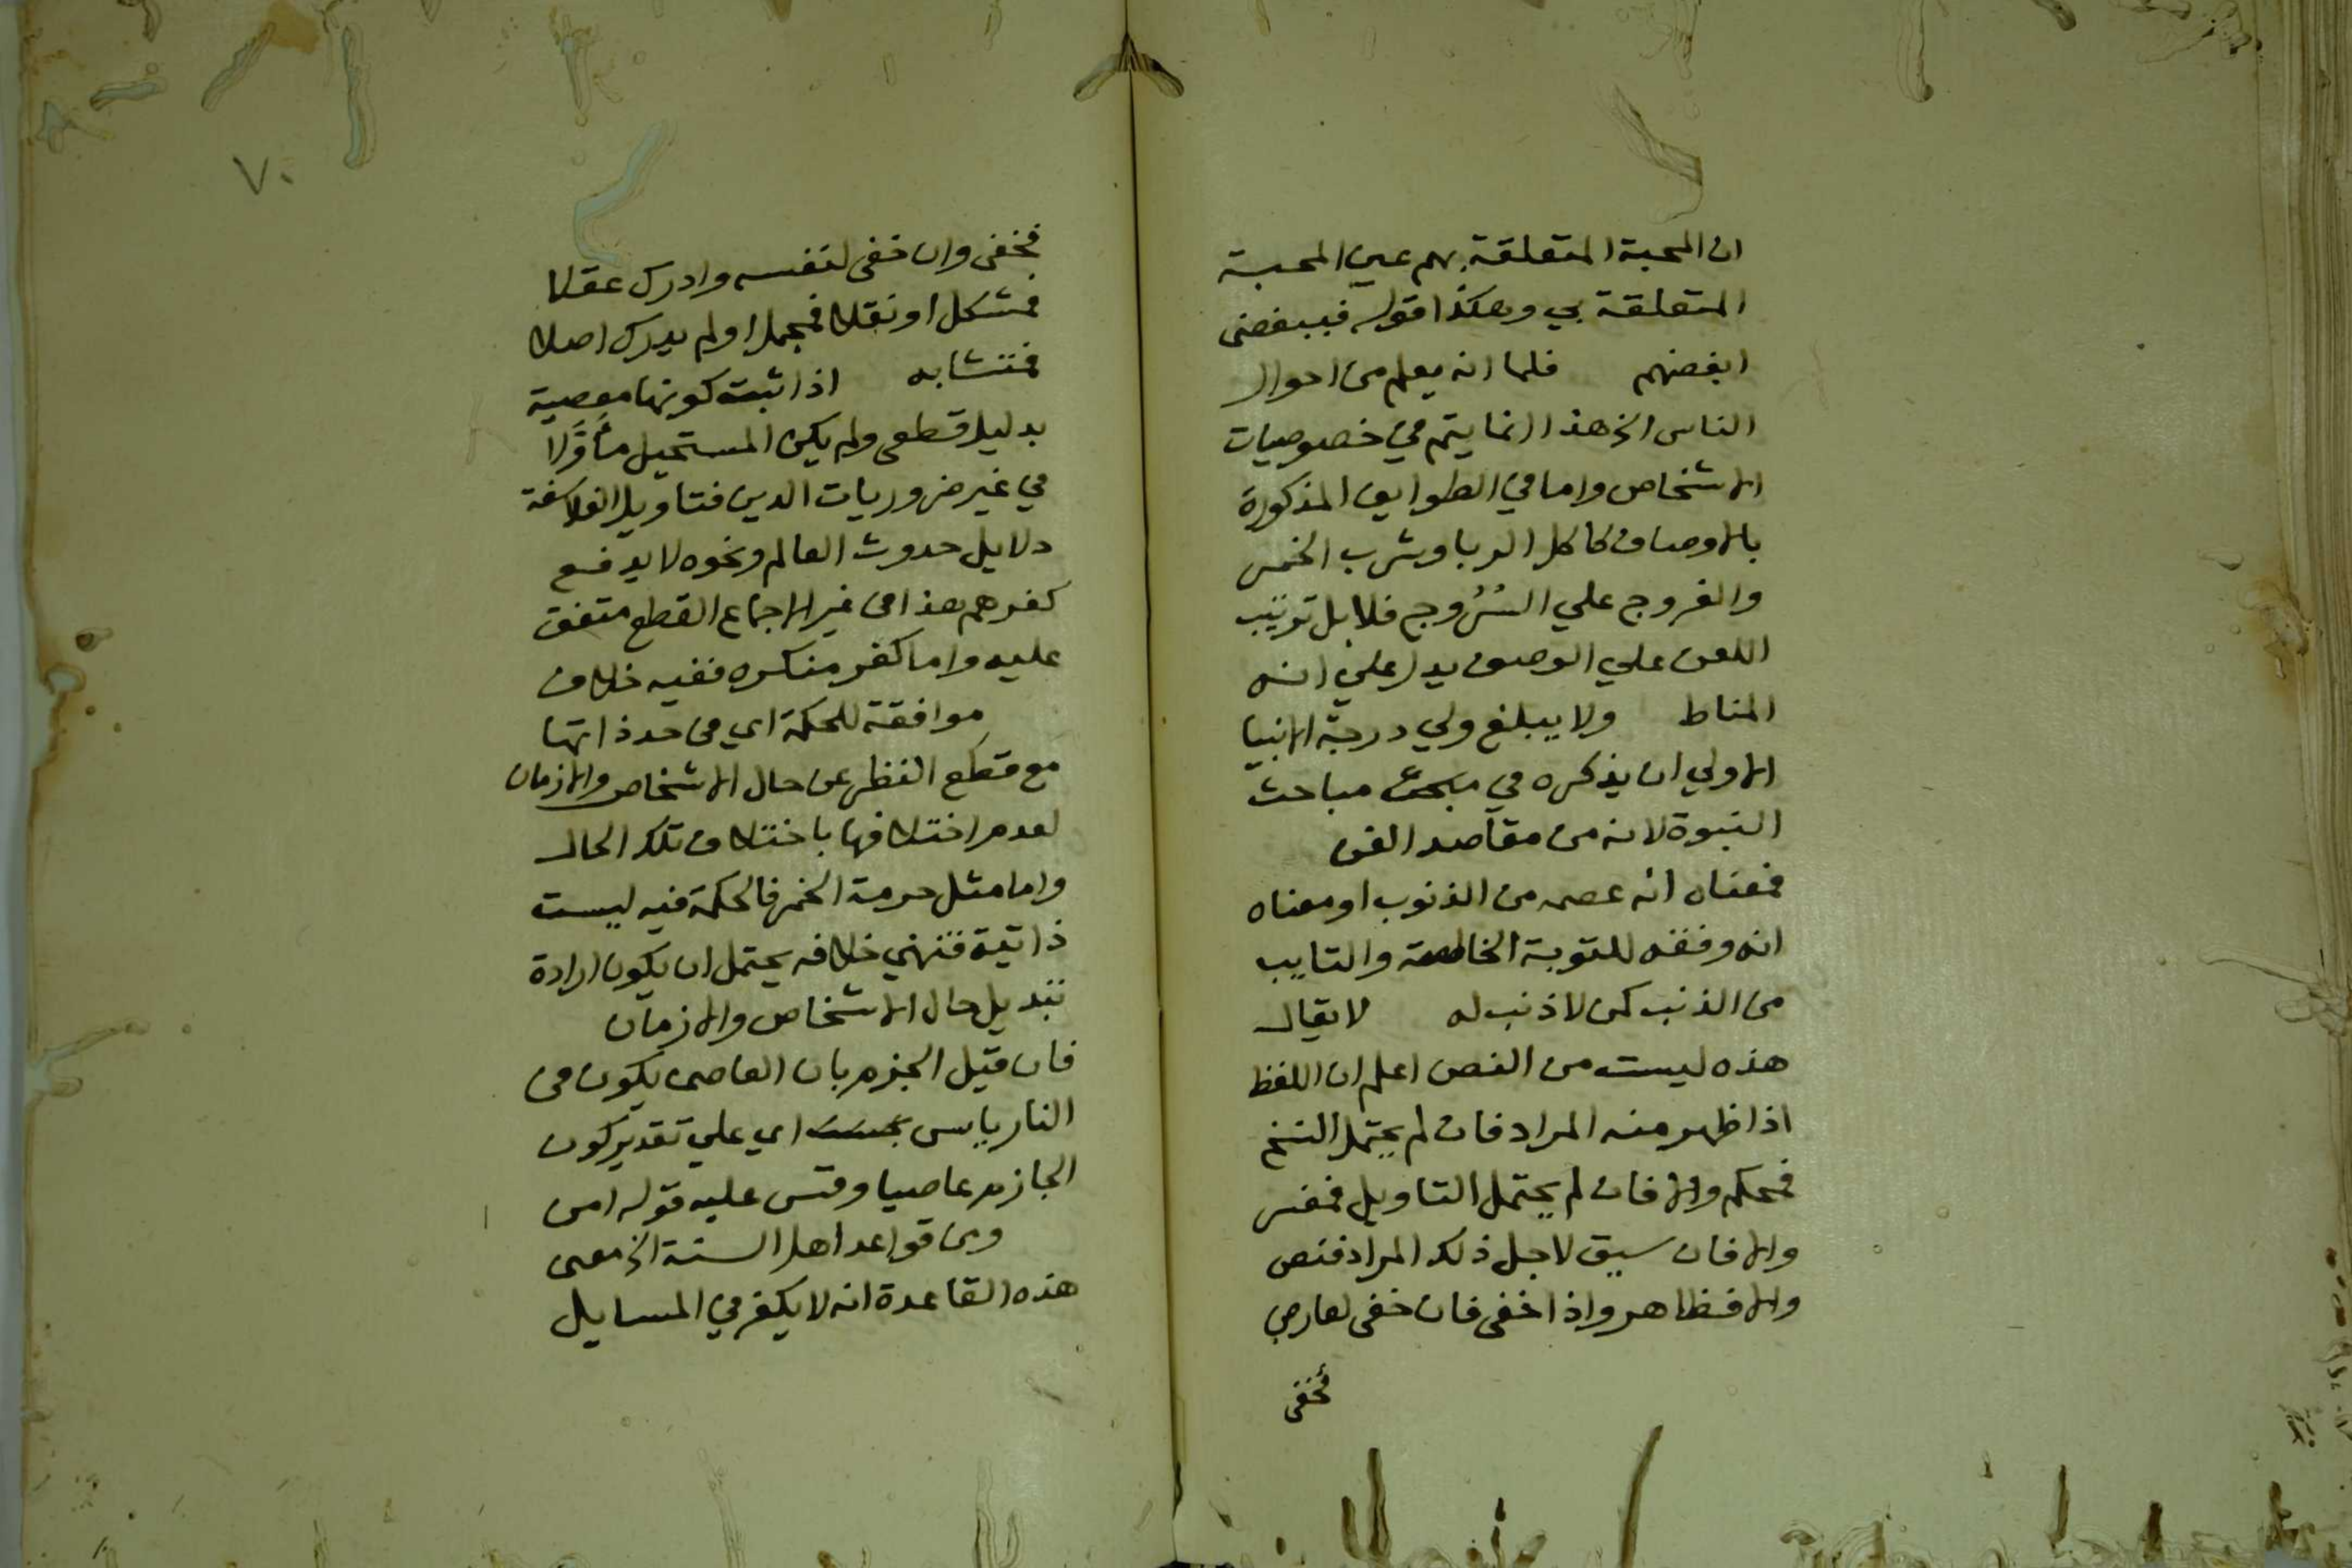 ان المحبة المتعلقة بهم عين المحبة
المتعلقة بي وهكذا قوله فببغضى
ابغضهم فلما انه يعلم من احوال
الناس الخ هذا انما يتم في خصوصيات
الاشخاص واما في الطوايف المذكورة
بالاوصاف كاكل الربا وشرب الخمر
والفروج علي السُرُوج فلا بل ترتيب
اللعن علي الوصف يدل علي انه
المناط ولا يبلغ ولي درجة الانبيا
الاولي ان يذكره في مبحث مباحث
النبوة لانه من مقاصد الفن
فمعناه انه عصمه من الذنوب او معناه
انه وفقه للتوبة الخالصة والتايب
من الذنب كمن لا ذنب له لا يقال
هذه ليست من النص اعلم ان اللفظ
اذا ظهر منه المراد فان لم يحتمل النسخ
فمحكم والا فان لم يحتمل التاويل فمفسر
والا فان سيق لاجل ذلك المراد فنص
والا فظاهر واذا خفى فان خفى لعارض
فخفى
٧٠
فخفى وان خفى لنفسه وادرك عقلا
فمشكل او نقلا فمجمل او لم يدرك اصلا
فمتشابه اذا ثبت كونها معصية
بدليل قطعى ولم يكن المستحيل مأوَّلا
في غير ضروريات الدين فتاويل الفلاسفة
دلايل حدوث العالم ونحوه لا يدفع
كفرهم هذا في غير الاجماع القطع متفق
عليه واما كفر منكره ففيه خلاف
موافقة للحكمة اي في حد ذاتها
مع قطع النظر عن حال الاشخاص والازمان
لعدم اختلافها باختلاف تلك الحال
واما مثل حرمة الخمر فالحكمة فيه ليست
ذاتية فنهي خلافه يحتمل ان يكون ارادة
تبديل حال الاشخاص والازمان
فان قيل الجزم بان العاصى يكون في
النار يايس اي علي تقدير كون
الجازم عاصيا وقس عليه قوله امن
ومن قواعد اهل السنة الخ معنى
هذه القاعدة انه لا يكفر في المسايل